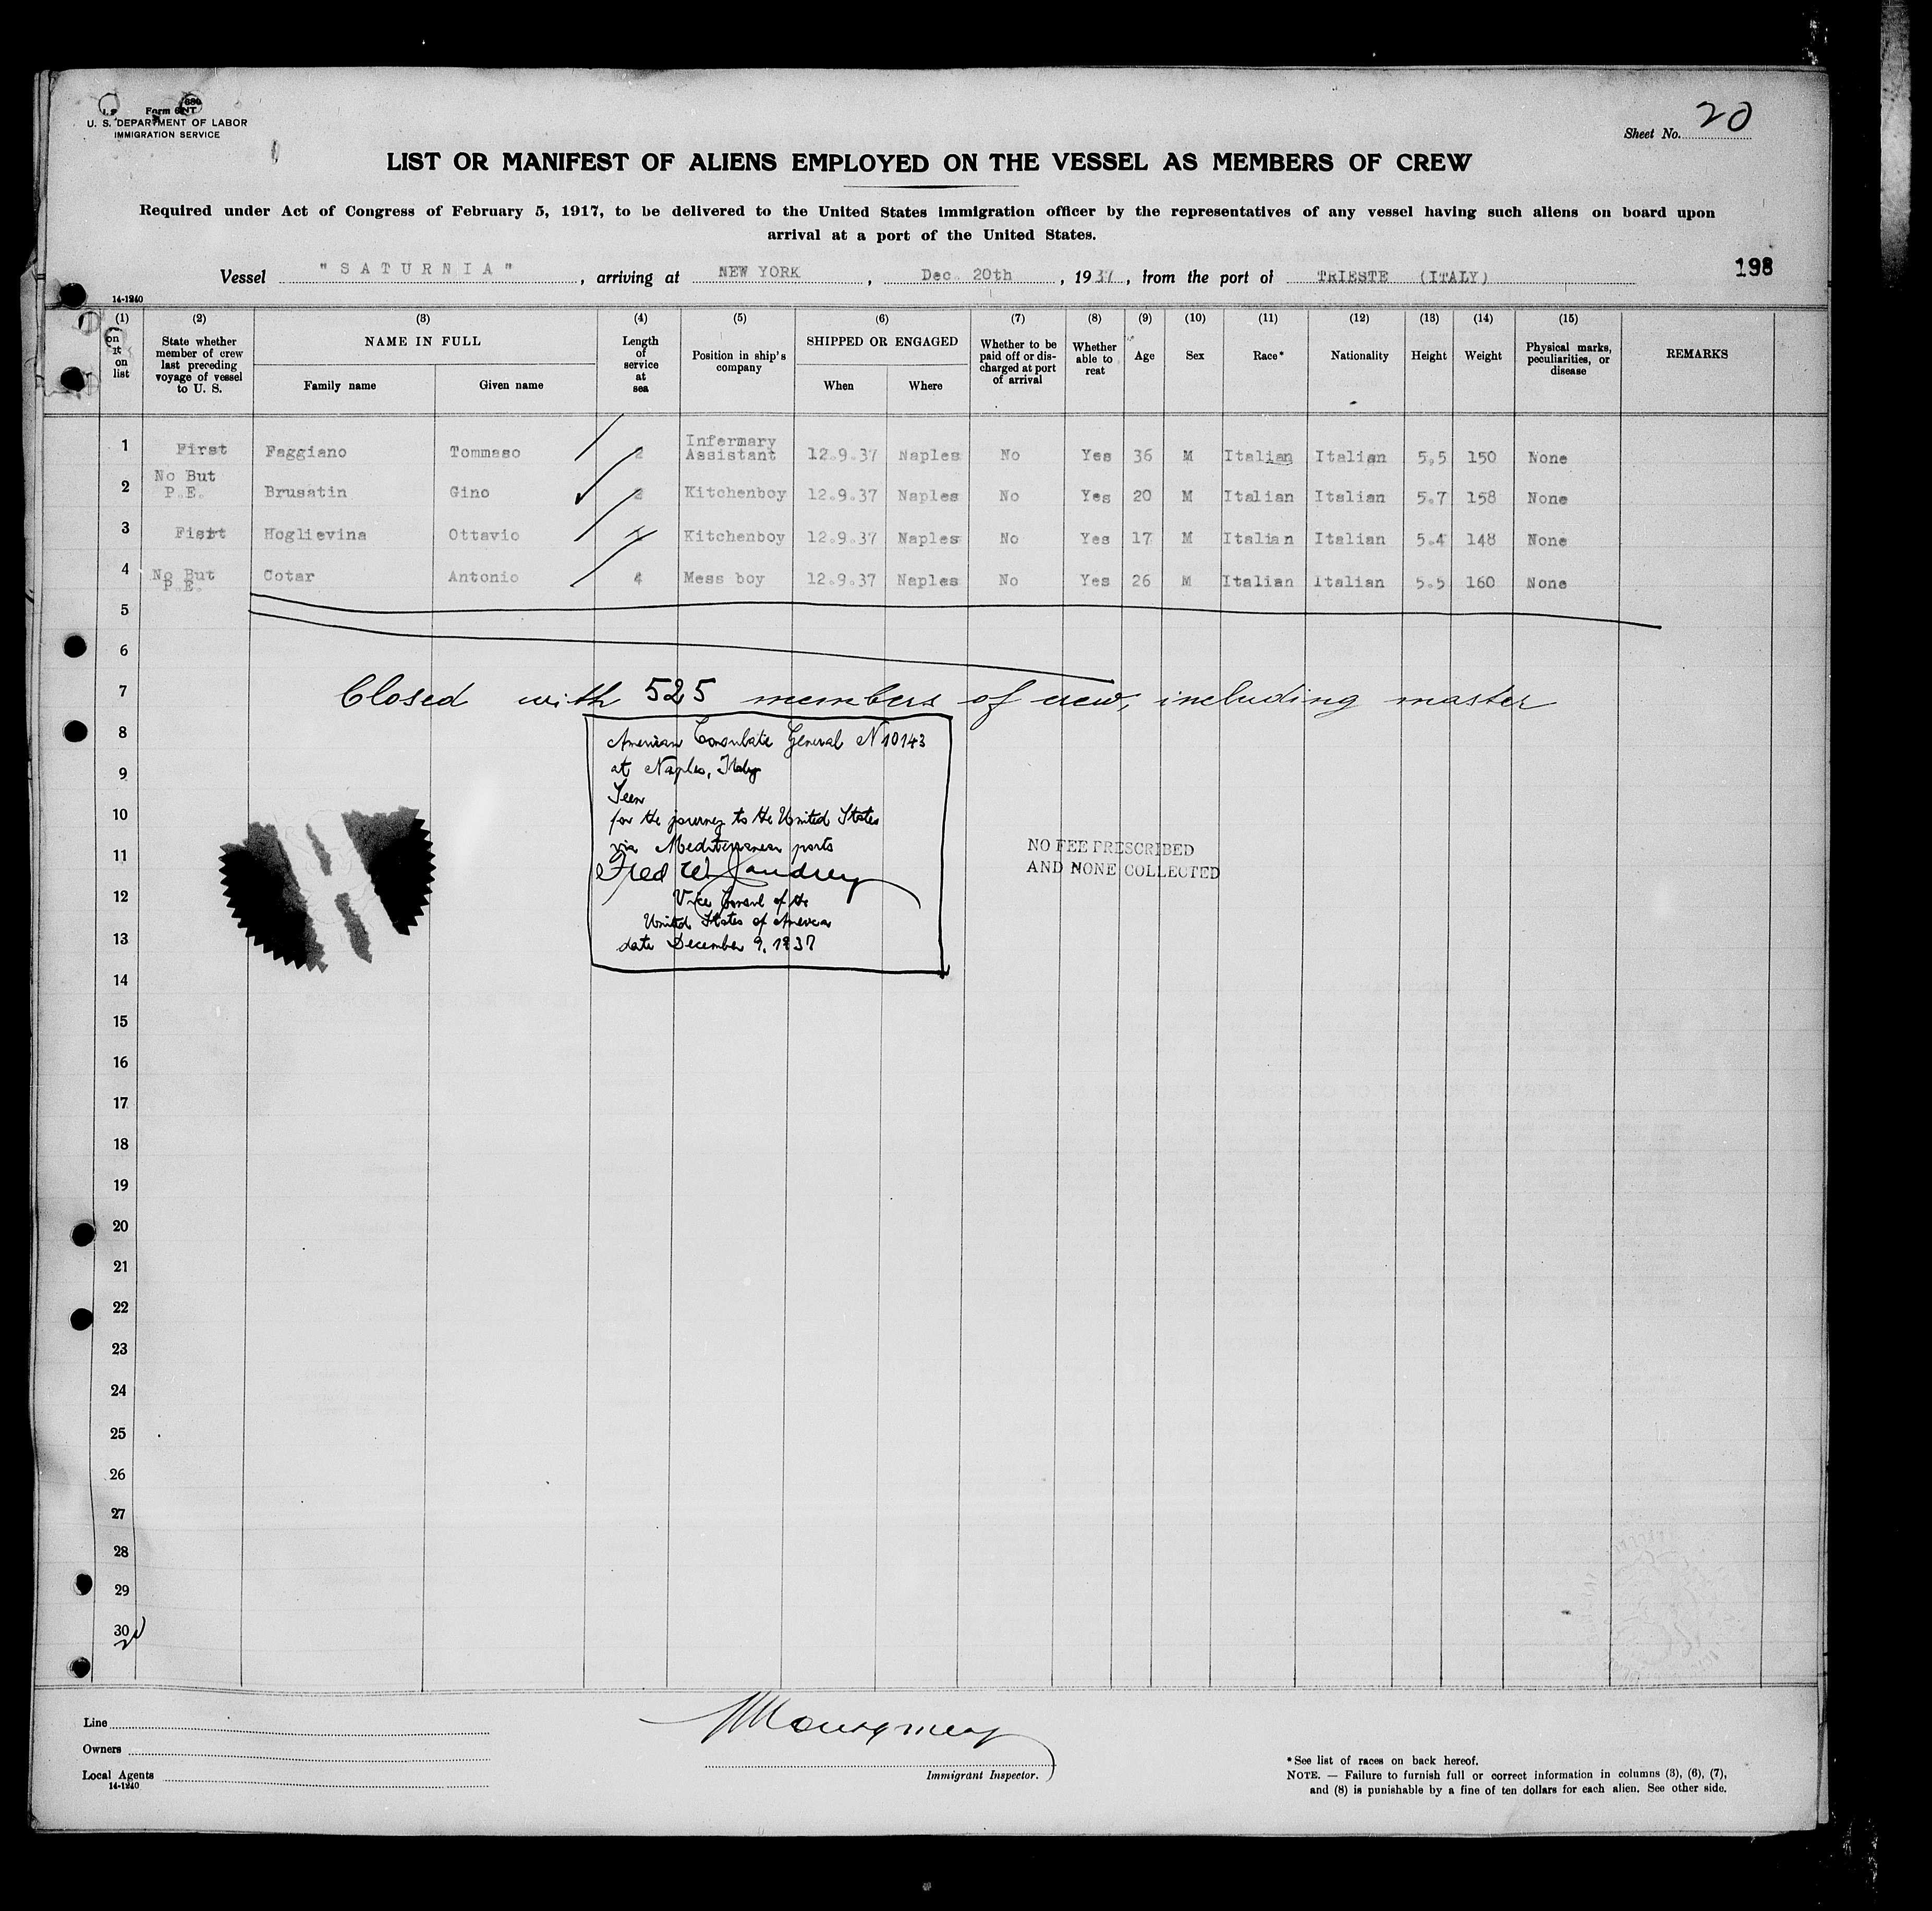 Form 680
U. S. DEPARTMENT OF LABOR
IMMIGRATION SERVICE
Sheet No. 20
LIST OR MANIFEST OF ALIENS EMPLOYED ON THE VESSEL AS MEMBERS OF CREW
Required under Act of Congress of February 5, 1917, to be delivered to the United States immigration officer by the representatives of any vessel having such aliens on board upon
arrival at a port of the United States.
Vessel "SATURNIA", arriving at NEW YORK, Dec. 20th, 1937, from the port of TRIESTE (ITALY)
198
14-1240
(1) (2) (3) (4) (5) (6) (7) (8) (9) (10) (11) (12) (13) (14) (15)
on list
State whether member of crew last preceding voyage of vessel to U. S.
NAME IN FULL
Family name Given name
Length of service at sea
Position in ship's company
SHIPPED OR ENGAGED
When Where
Whether to be paid off or discharged at port of arrival
Whether able to reat
Age Sex Race* Nationality Height Weight
Physical marks, peculiarities, or disease
REMARKS
1 First Faggiano Tommaso Infermary Assistant 12.9.37 Naples No Yes 36 M Italian Italian 5.5 150 None
2 No But P.E. Brusatin Gino Kitchenboy 12.9.37 Naples No Yes 20 M Italian Italian 5.7 158 None
3 Fisrt Hoglievina Ottavio Kitchenboy 12.9.37 Naples No Yes 17 M Italian Italian 5.4 148 None
4 No But P.E. Cotar Antonio 4 Mess boy 12.9.37 Naples No Yes 26 M Italian Italian 5.5 160 None
5
6
7 Closed with 525 members of crew, including master
8 American Consulate General N 10143
9 at Naples, Italy
Seen
10 for the journey to the United States
11 via Mediterranean ports
Fred W.
NO FEE PRESCRIBED
AND NONE COLLECTED
12 Vice Consul of the
United States of America
13 date December 9, 1937
14
15
16
17
18
19
20
21
22
23
24
25
26
27
28
29
30
Line
Owners
Local Agents
14-1240
Montgomery
Immigrant Inspector.
*See list of races on back hereof.
NOTE. — Failure to furnish full or correct information in columns (3), (6), (7),
and (8) is punishable by a fine of ten dollars for each alien. See other side.